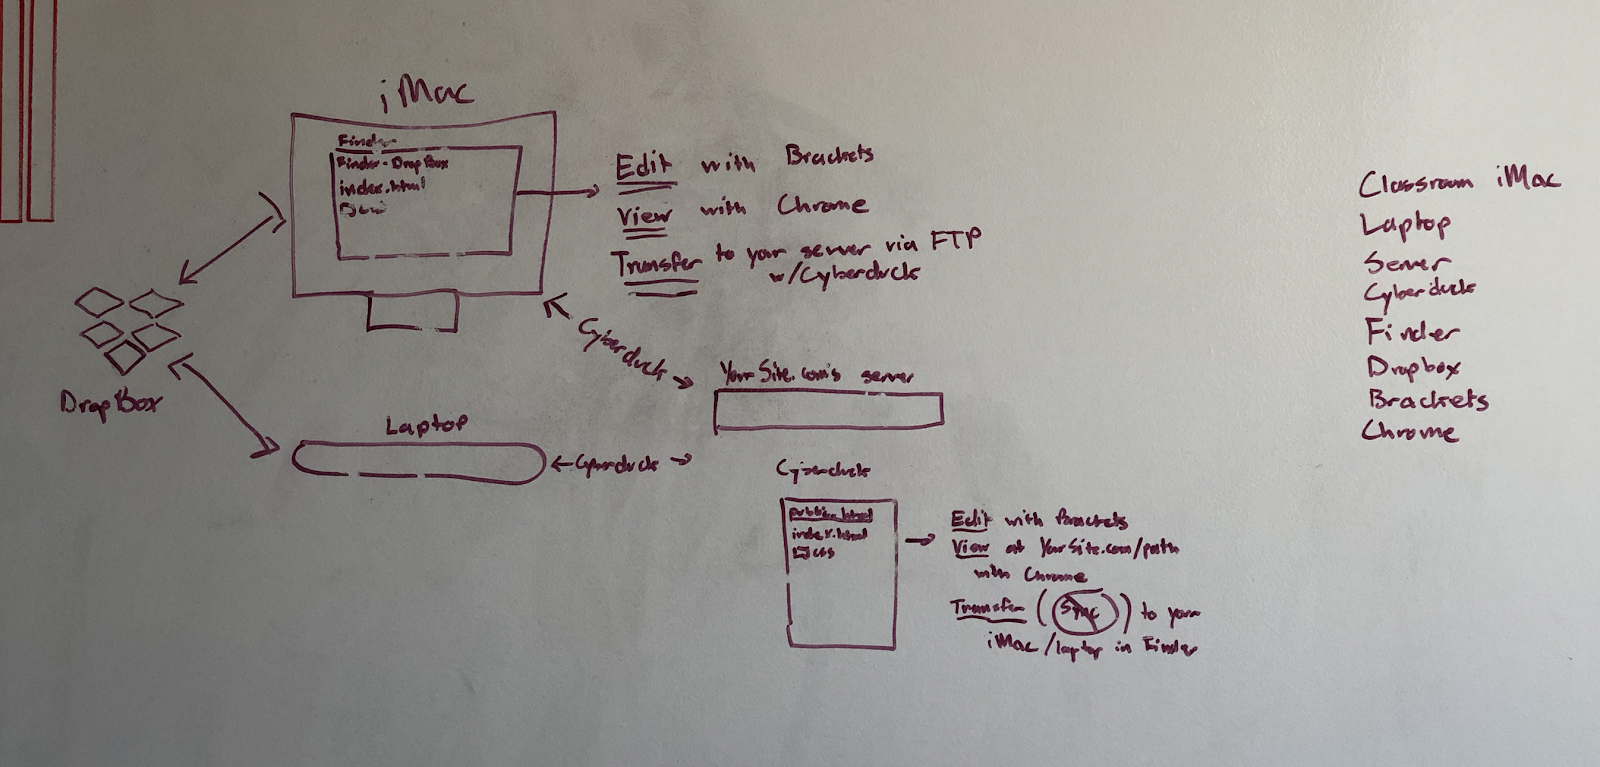 iMac
Finder
Finder - DropBox
index.html
Edit with Brackets
View with Chrome
Transfer to your server via FTP
w/Cyberduck
DropBox
Cyberduck
YourSite.com's server
Laptop
Cyberduck
Cyberduck
public_html
index.html
css
Edit with Brackets
View at YourSite.com/path
with Chrome
Transfer (Sync) to your
iMac/laptop in Finder
Classroom iMac
Laptop
Server
Cyberduck
Finder
Dropbox
Brackets
Chrome